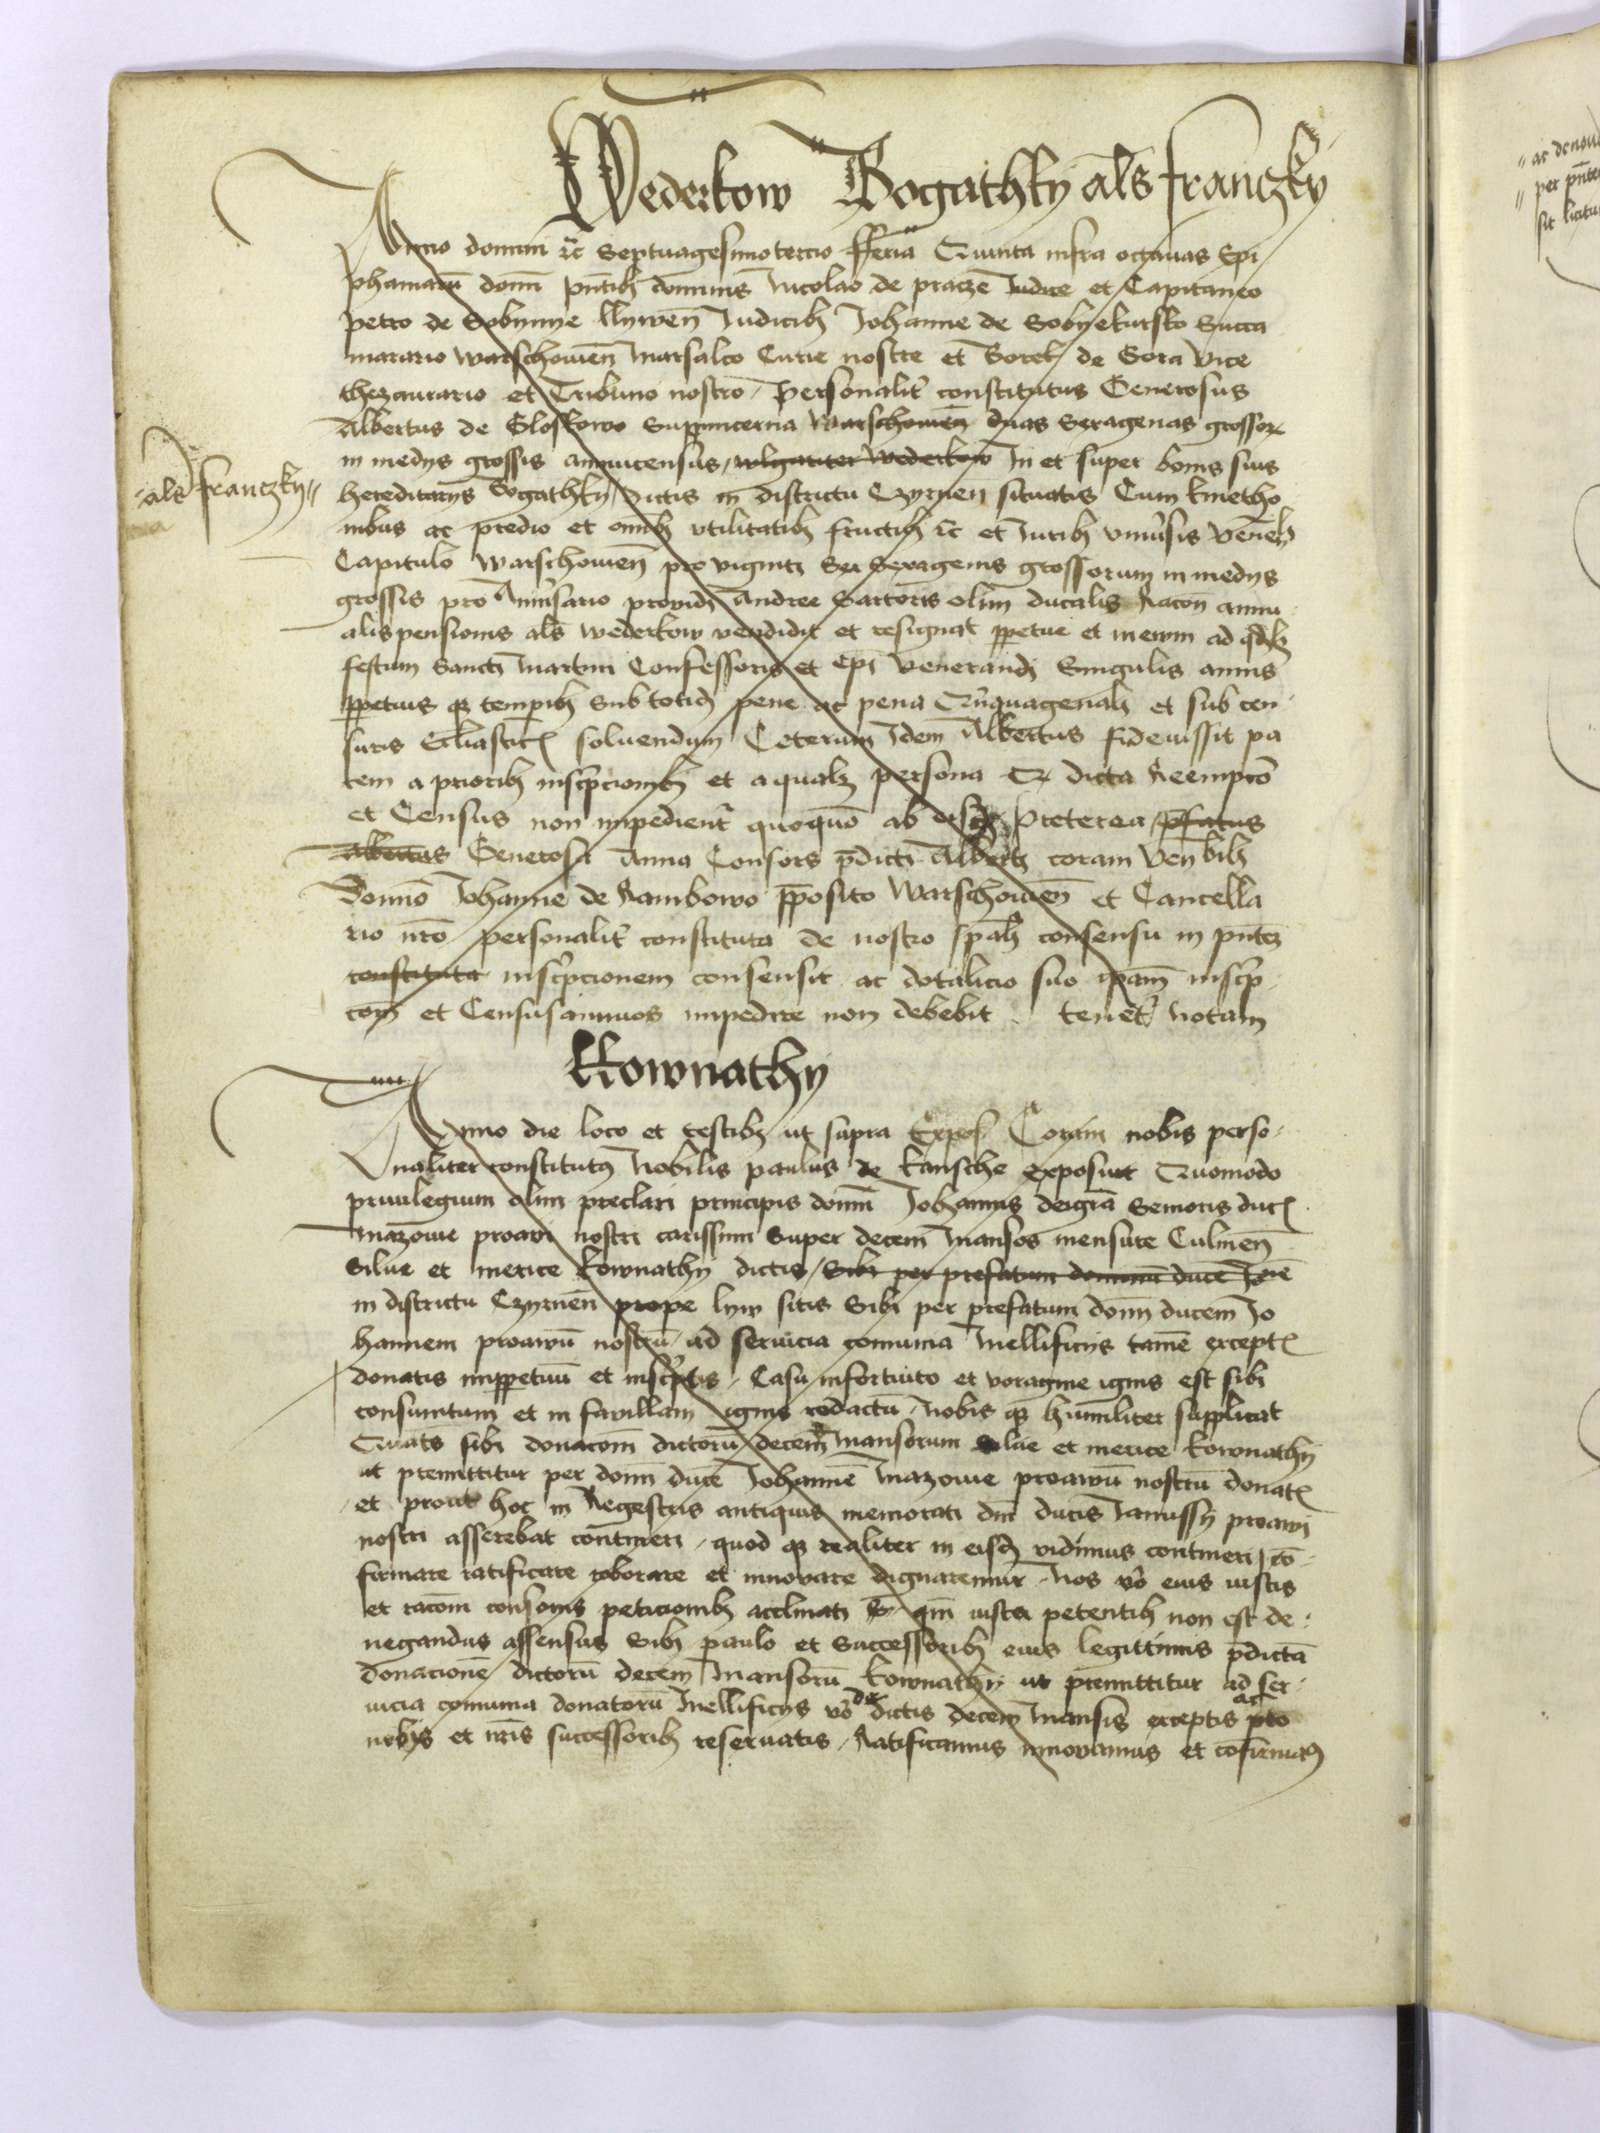 Wederkow Bogathky als franczky
Anno domini etc Septuagesimotercio fferia Quinta infra octavas Epi
phaniarũ domĩ pñtibꝫ dominis Nicolao de pracze Iudice et Capitaneo
petro de Sobynye llywẽn Iudicibꝫ Johanne de Sobyekursko Succa
marario Warschowiẽn Marsalco Curie nostre et de Gora Vice
thezaurario et Tribuno nostro personalit̾ constitutus Generosus
Albertus de Gloskowo Suppincerna Warschowiẽn duas Sexagenas grossoꝝ
in medys grossis annuicensus wlgariter Wederkow In et super bonis suis
als franczky
hereditarys Bogathky dictis in districtu Czyrnen situatis Cum kmetho
nibus ac predio et om̃ibꝫ vtilitatibꝫ fructibꝫ etc et Iuribꝫ vniu̾sis Veneli
Capitulo Warschowieñ pro viginti Sex Sexagenis grossorum in medys
grossis pro Anniu̾sario prouidi Andree Sartoris olim ducalis Racoñ annu
alis pensionis als wederkow vendidit et resignat ꝑpetue et in ewm ad qdlꝫ
festum Sancti Martini Confessoris et Epi Venerandi Singulis annis
ꝑpetuis qꝫ temp̾ibꝫ Sub totid pene ac pena Quinquagenali et sub cen
suris Ecl̃iasticꝭ soluendum Ceterum Idem Albertus fideiussit pa
cem a prioribꝫ inscp̃cionibꝫ et a qualꝫ persona Qꝫ dicta Reempcõ
et Census non impedient̾ quoquõ ab Preterea p̃fatus
Albertus Generosa Anna Consors p̃dicti Alberti coram Veñbili
Domño Johanne de Rambowo p̃posito Warschowieñ et Cancella
rio nr̃o personalit̾ constituta de nostro sp̃ali consensu in p̃ntem
constituta inscp̃cionem consensit ac dotalicio suo ip̃am inscp̃
coñ et Censusannuos impedire non debebit tenet̾ notam
Kownathy
Anno die loco et testibꝫ ut supra Coram nobis perso
naliter constitutꝰ Nobilis paulus de kansche exposuit Quomodo
priuilegium olim preclari principis domĩ Johannis deigr̃a Senioris ducꝭ
Mazouie proaui nostri carissimi Super decem Mansos mensure Culmeñ
Silue et merice kownathy dictis Sibi per prefatum dominũ ducẽ Joñe
in districtu Czyrneñ prope lyw sitis Sibi per prefatum domĩ ducem Jo
hannem proauũ nostrũ ad seruicia comunia Mellificys tamẽ exceptꝭ
donatis inꝑpetuũ et insc̃ptis Casu infortuito et voragine ignis est sibi
consumtum et in fauillam ignis redactũ nobis qꝫ humiliter supplicat
Quate sibi donacom̃ dictorũ decem Mansorum Silue et merice kownathy
ut premittitur per domĩ ducẽ Johannẽ Mazouie proauũ nostrũ donatꝭ
et prout hoc in Regestris antiquis memorati dñi ducis Janussy proaui
nostri asserebat contineri quod qꝫ realiter in eisd vidimus contineri cõ
firmare ratificare roborare et innouare dignaremur Nos vo̾ eius iustis
et racom̃ consonis peticionibꝫ acclinati qm̃ iusta petentibꝫ non est de
negandus assensus Sibi paulo et Successoribꝫ eius legittimis p̃dictã
donacionẽ dictorũ decem Mansorũ kownathy ut premittitur ad ser
uicia comunia donatorũ Mellificys vo̾ de dictis decem Mansis exceptis ac pro
nobis et nr̃is successoribꝫ reseruatis Ratificamus innouamus et cofirmamꝰ